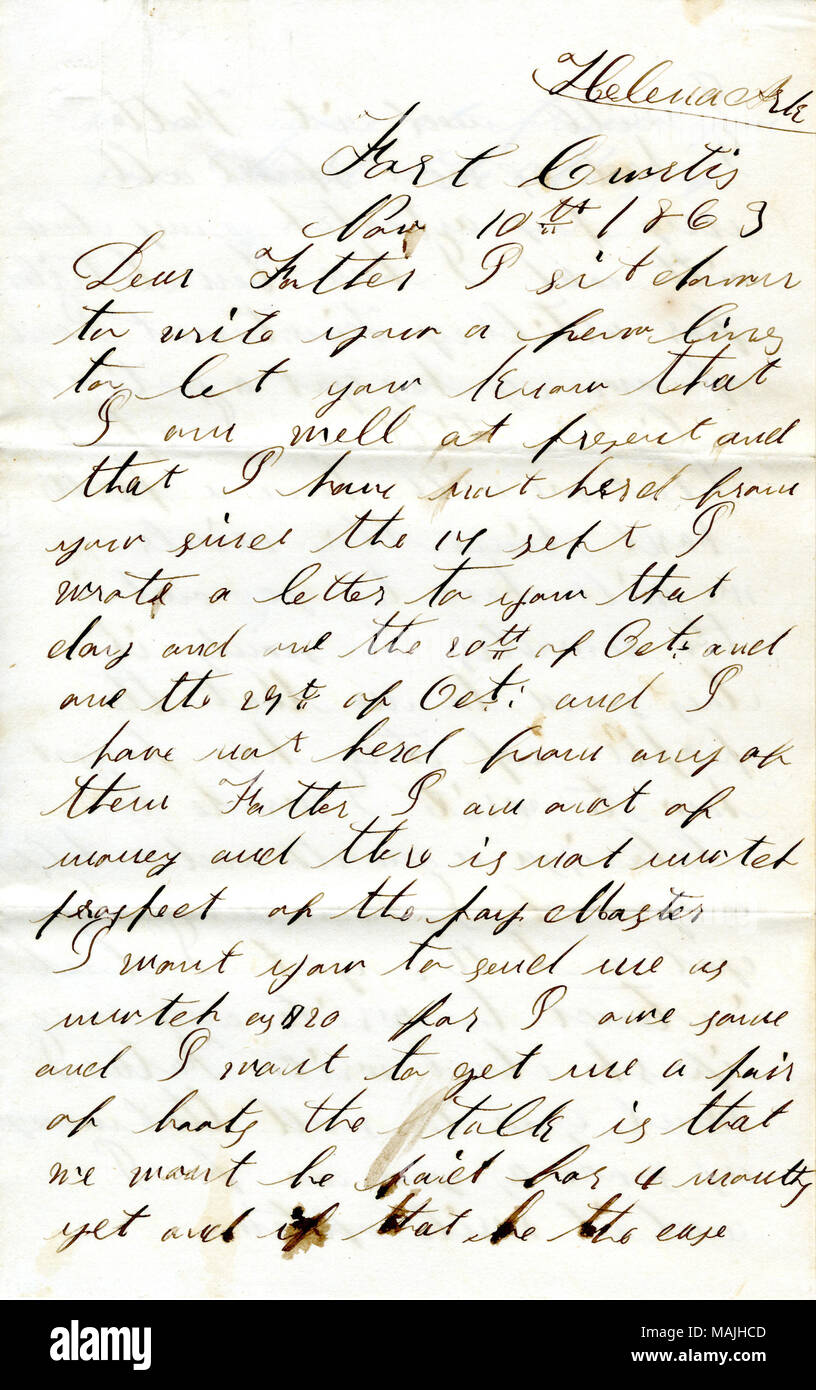 Helena Ark
Fort Curtis
Nov 10th 1863
Dear Father I sit down
to write you a few lines
to let you know that
I am well at present and
that I have not herd from
you since the 17 sept I
wrote a letter to you that
day and one the 20th of Oct. and
one the 29th of Oct. and I
have not herd from any of
them Father I am out of
money and there is not mutch
prospect of the pay Master
I want you to send me as
mutch as $20 for I owe some
and I want to get me a pair
of boots the talk is that
we wont be paid for 4 months
yet and if that be the case
alamy
Image ID: MAJHCD
www.alamy.com